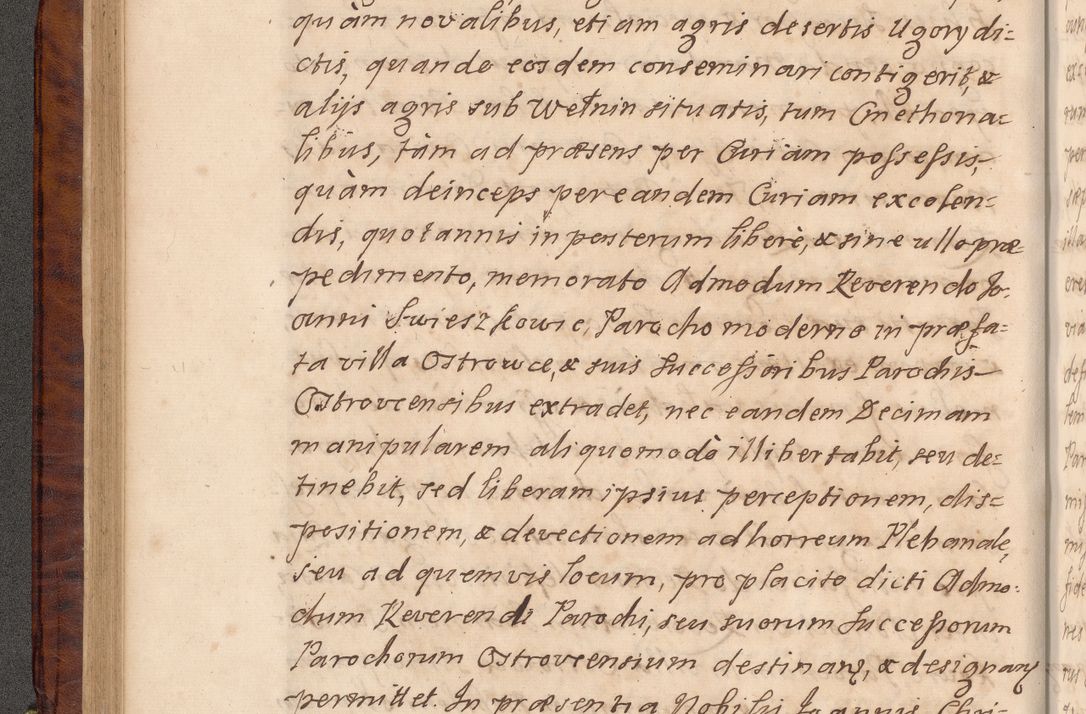 quàm novalibus, etiam agris desertis Ugory di=
ctis, quando eosdem conseminari contigerit, &
alijs agris sub Wełnin situatis, tum Cmethona=
libus, tàm ad præsens per Curiam possessis,
quàm deinceps per eandem Curiam excolen=
dis, quotannis in posterum liberè, & sine ullo præ
pedimento, memorato Admodum Reverendo Jo=
anni Swieszkowic, Parocho moderno in præfa=
ta villa Ostrowce, & suis Successoribus Parochis
Ostrovcensibus extradet, nec eandem Decimam
manipularem aliquomodò illibertabit, seu de=
tinebit, sed liberam ipsius perceptionem, dis=
positionem, & devectionem ad horreum Plebanale,
seu ad quemvis locum, pro placito dicti Admo=
dum Reverendi Parochi, seu suorum Successorum
Parochorum Ostrovcensium destinanḍ, & designanḍ
permittet. In præsentia Nobiliũ Joannis Chri=